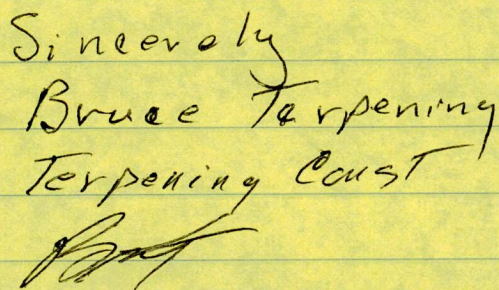 Sincerely
Bruce Terpening
Terpening Const